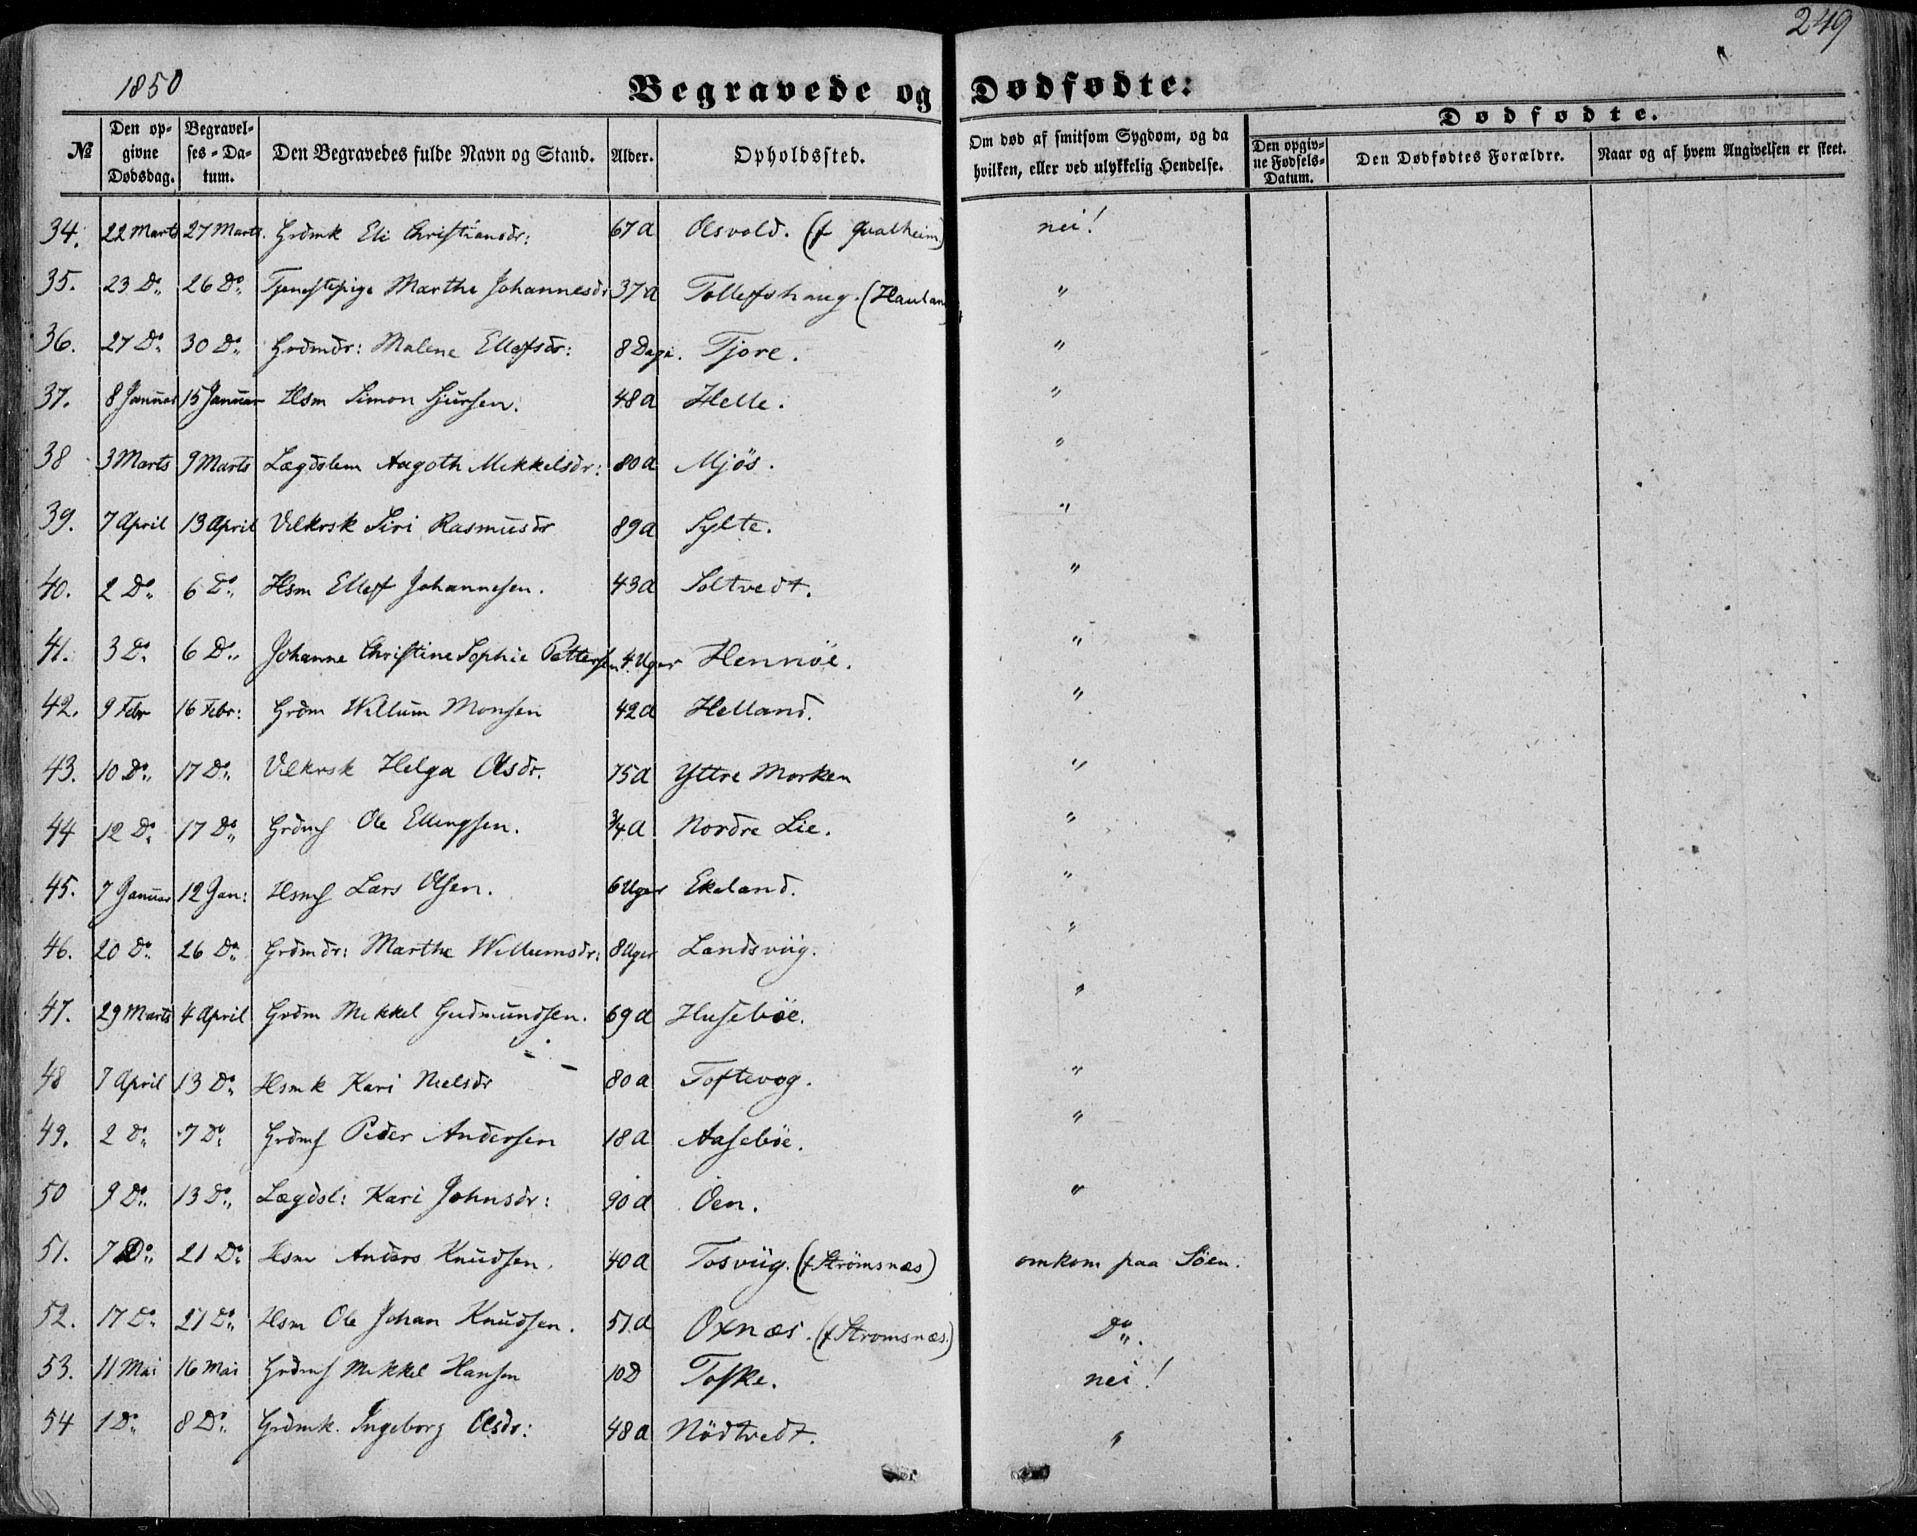 249
1850
Begravede og Dødfødte:
Dødfødte.
№ Den opgivne Dødsdag. Begravelses-Datum. Den Begravedes fulde Navn og Stand. Alder. Opholdssted. Om død af smitsom Sygdom, og da hvilken, eller ved ulykkelig Hendelse. Den opgivne Fødsels-Datum. Den Dødfødtes Forældre. Naar og af hvem Angivelsen er skeet.
34. 22 Marts 27 Marts. Grdmk Eli Christiansdr: 67 a Olsvold. (f Qvalheim) nei!
35. 23 Do 26 Do Tjenestepige Marthe Johannesdr 37 a Tollefshaug. (Hauland) "
36. 27 Do 30 Do Grdmdr: Malene Ellefsdr: 8 Dage. Tjore. "
37. 8 Januar 15 Januar Hsm Simon Sjursen. 48 a Helle. "
38 3 Marts 9 Marts Lægdslem Aagoth Mikkelsdr: 80 a Mjös. "
39. 7 April 13 April Vilkrsk Siri Rasmusdr 89 a Sylte. "
40. 2 Do 6 Do Hsm Ellef Johannesen. 43 a Soltvedt. "
41. 3 Do 6 Do Johanne Christine Sophie Pettersen 4 Uger Hennöe. "
42. 9 Febr 16 Febr: Grdm Willum Monsen 42 a Helland. "
43. 10 Do 17 Do Vilkrsk Helga Olsdr. 75 a Yttre Morken "
44 12 Do 17 Do Grdms Ole Ellingsen. 3/4 a Nordre Lie. "
45. 7 Januar 12 Jan: Hsms Lars Olsen. 6 Uger Ekeland. "
46. 20 Do 26 Do Grdmdr: Marthe Willumsdr: 8 Uger Landsviig. "
47. 29 Marts 4 April Grdm Mikkel Gudmundsen. 69 a Huseböe. "
48 7 April 13 Do Hsmk Kari Nielsdr 80 a Toftevog. "
49. 2 Do 7 Do Grdms Peder Andersen 18 a Aaseböe. "
50 9 Do 13 Do Lægdsl: Kari Johnsdr: 90 a Öen. "
51. 7 Do 21 Do Hsm Anders Knudsen. 40 a Tosviig. (f Strömsnæs) omkom paa Söen.
52. 17 Do 21 Do Hsm Ole Johan Knudsen. 51 a Oxnæs. (f Stromsnæs.) Do.
53. 11 Mai 16 Mai Grdms Mikkel Hansen 10 D Toske. nei!
54 1 Do 8 Do Grdmk. Ingeborg Olsdr: 48 a Nödtvedt. "